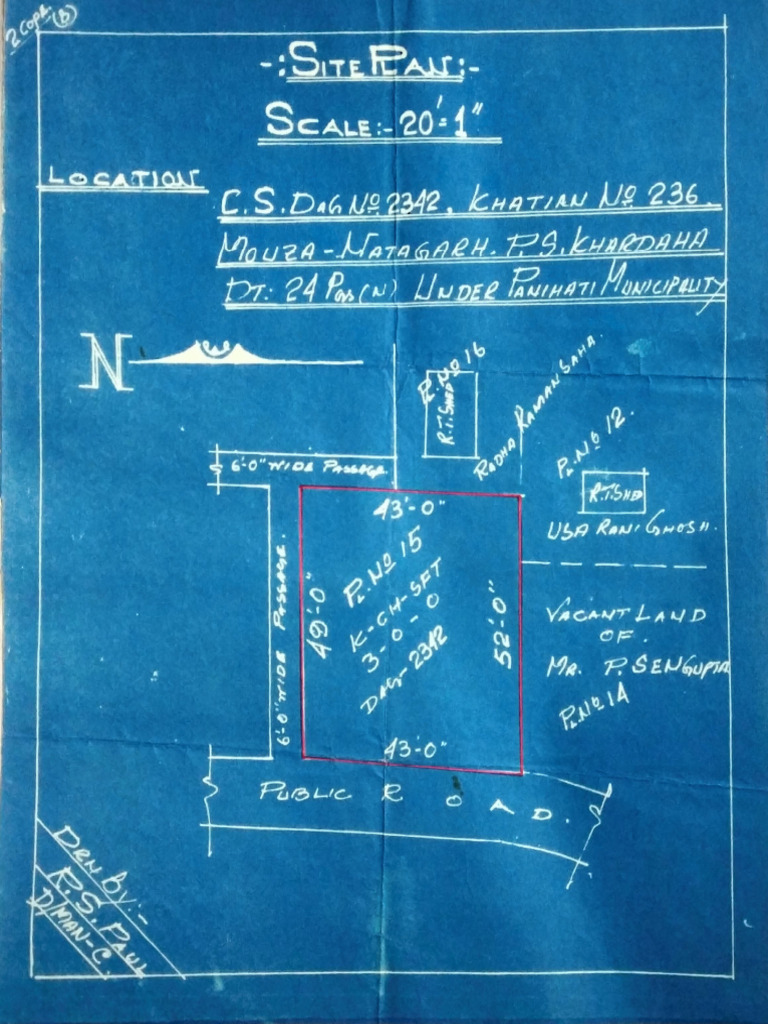 2 Cops. (B)
-:SITE PLAN:-
SCALE:- 20'=1"
LOCATION
C.S. DAG NO 2342, KHATIAN NO 236.
MOUZA-NATAGARH. P.S. KHARDAHA
DT: 24 PGS (N) UNDER PANIHATI MUNICIPALITY
N
PL. NO 16
R.T. SHED
RADHA RAMAN SAHA.
PL. NO 12.
R.T. SHED
USA RANI GHOSH.
6'-0" WIDE PASSAGE.
43'-0"
PL. NO 15
K-CH-SFT
3-0-0
DAG-2342
49'-0"
52'-0"
6'-0" WIDE PASSAGE.
43'-0"
VACANT LAND
OF.
MR. P. SENGUPTA
PL. NO 14
PUBLIC ROAD.
DRN BY:-
R. S. PAUL
D/MAN-C.